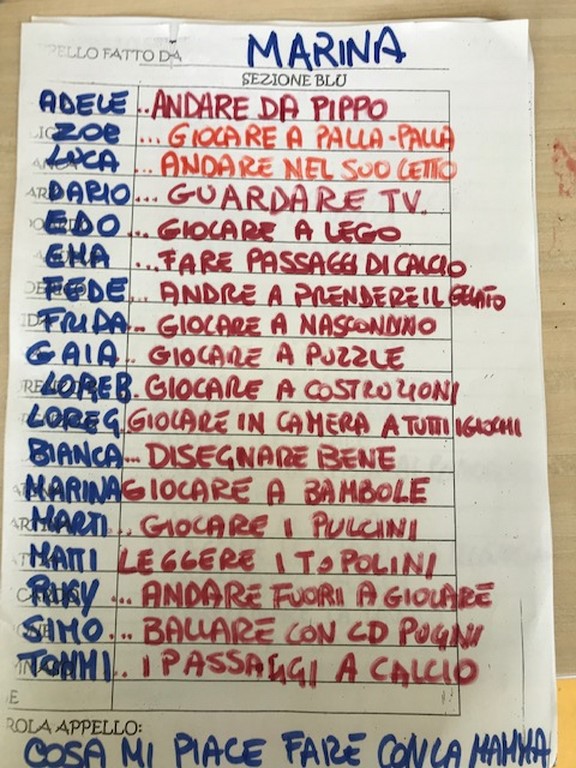 PELLO FATTO DA MARINA
SEZIONE BLU
ADELE ..ANDARE DA PIPPO
ZOE ... GIOCARE A PALLA-PALLA
LUCA ... ANDARE NEL SUO LETTO
DARIO... GUARDARE TV.
EDO ... GIOCARE A LEGO
EMA ...FARE PASSAGGI DI CALCIO
FEDE... ANDRE A PRENDERE IL GELATO
FRIDA... GIOCARE A NASCONDINO
GAIA... GIOCARE A PUZZLE
LORE B. GIOCARE A COSTRUZIONI
LORE G. GIOCARE IN CAMERA A TUTTI I GIOCHI
BIANCA... DISEGNARE BENE
MARINA GIOCARE A BAMBOLE
MARTI ... GIOCARE I PULCINI
MATTI LEGGERE I TOPOLINI
RICKY ... ANDARE FUORI A GIOCARE
SIMO ... BALLARE CON CD PUGNI
TOMMI .. I PASSAGGI A CALCIO
E
ROLA APPELLO:
COSA MI PIACE FARE CON LA MAMMA